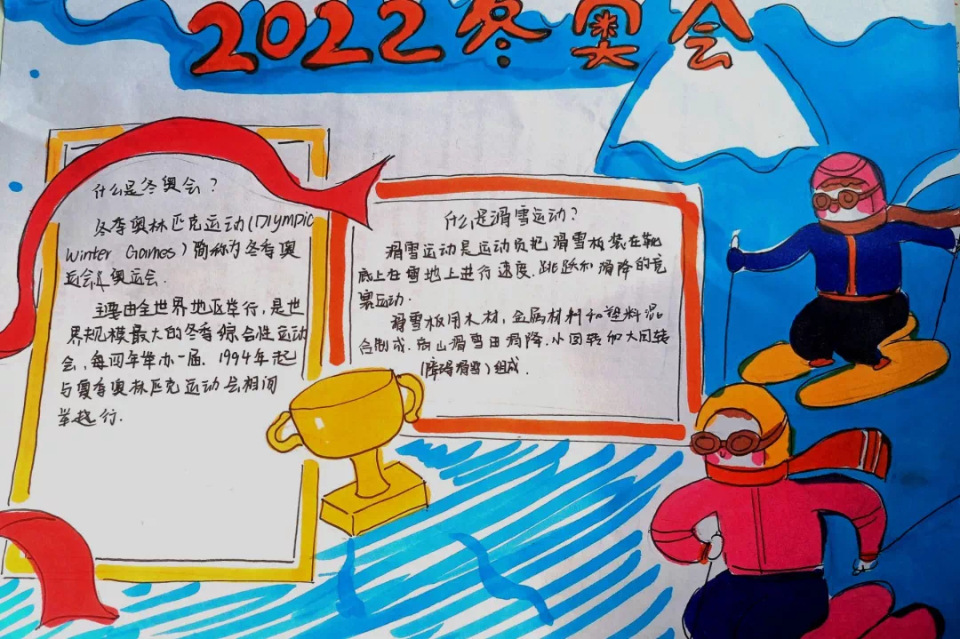 2022冬奥会
什么是冬奥会？
冬季奥林匹克运动(Olympic
Winter Games）简称为冬季奥
运会，奥运会.
主要由全世界地区举行，是世
界规模最大的冬季综合性运动
会，每四年举办一届. 1994年起
与夏季奥林匹克运动会相间
举行.
什么是滑雪运动？
滑雪运动是运动员把滑雪板装在靴
底上在雪地上进行速度、跳跃和滑降的竞
赛运动.
滑雪板用木材，金属材料和塑料混
合制成.高山滑雪由滑降.小回转和大回转
（障碍滑雪）组成.